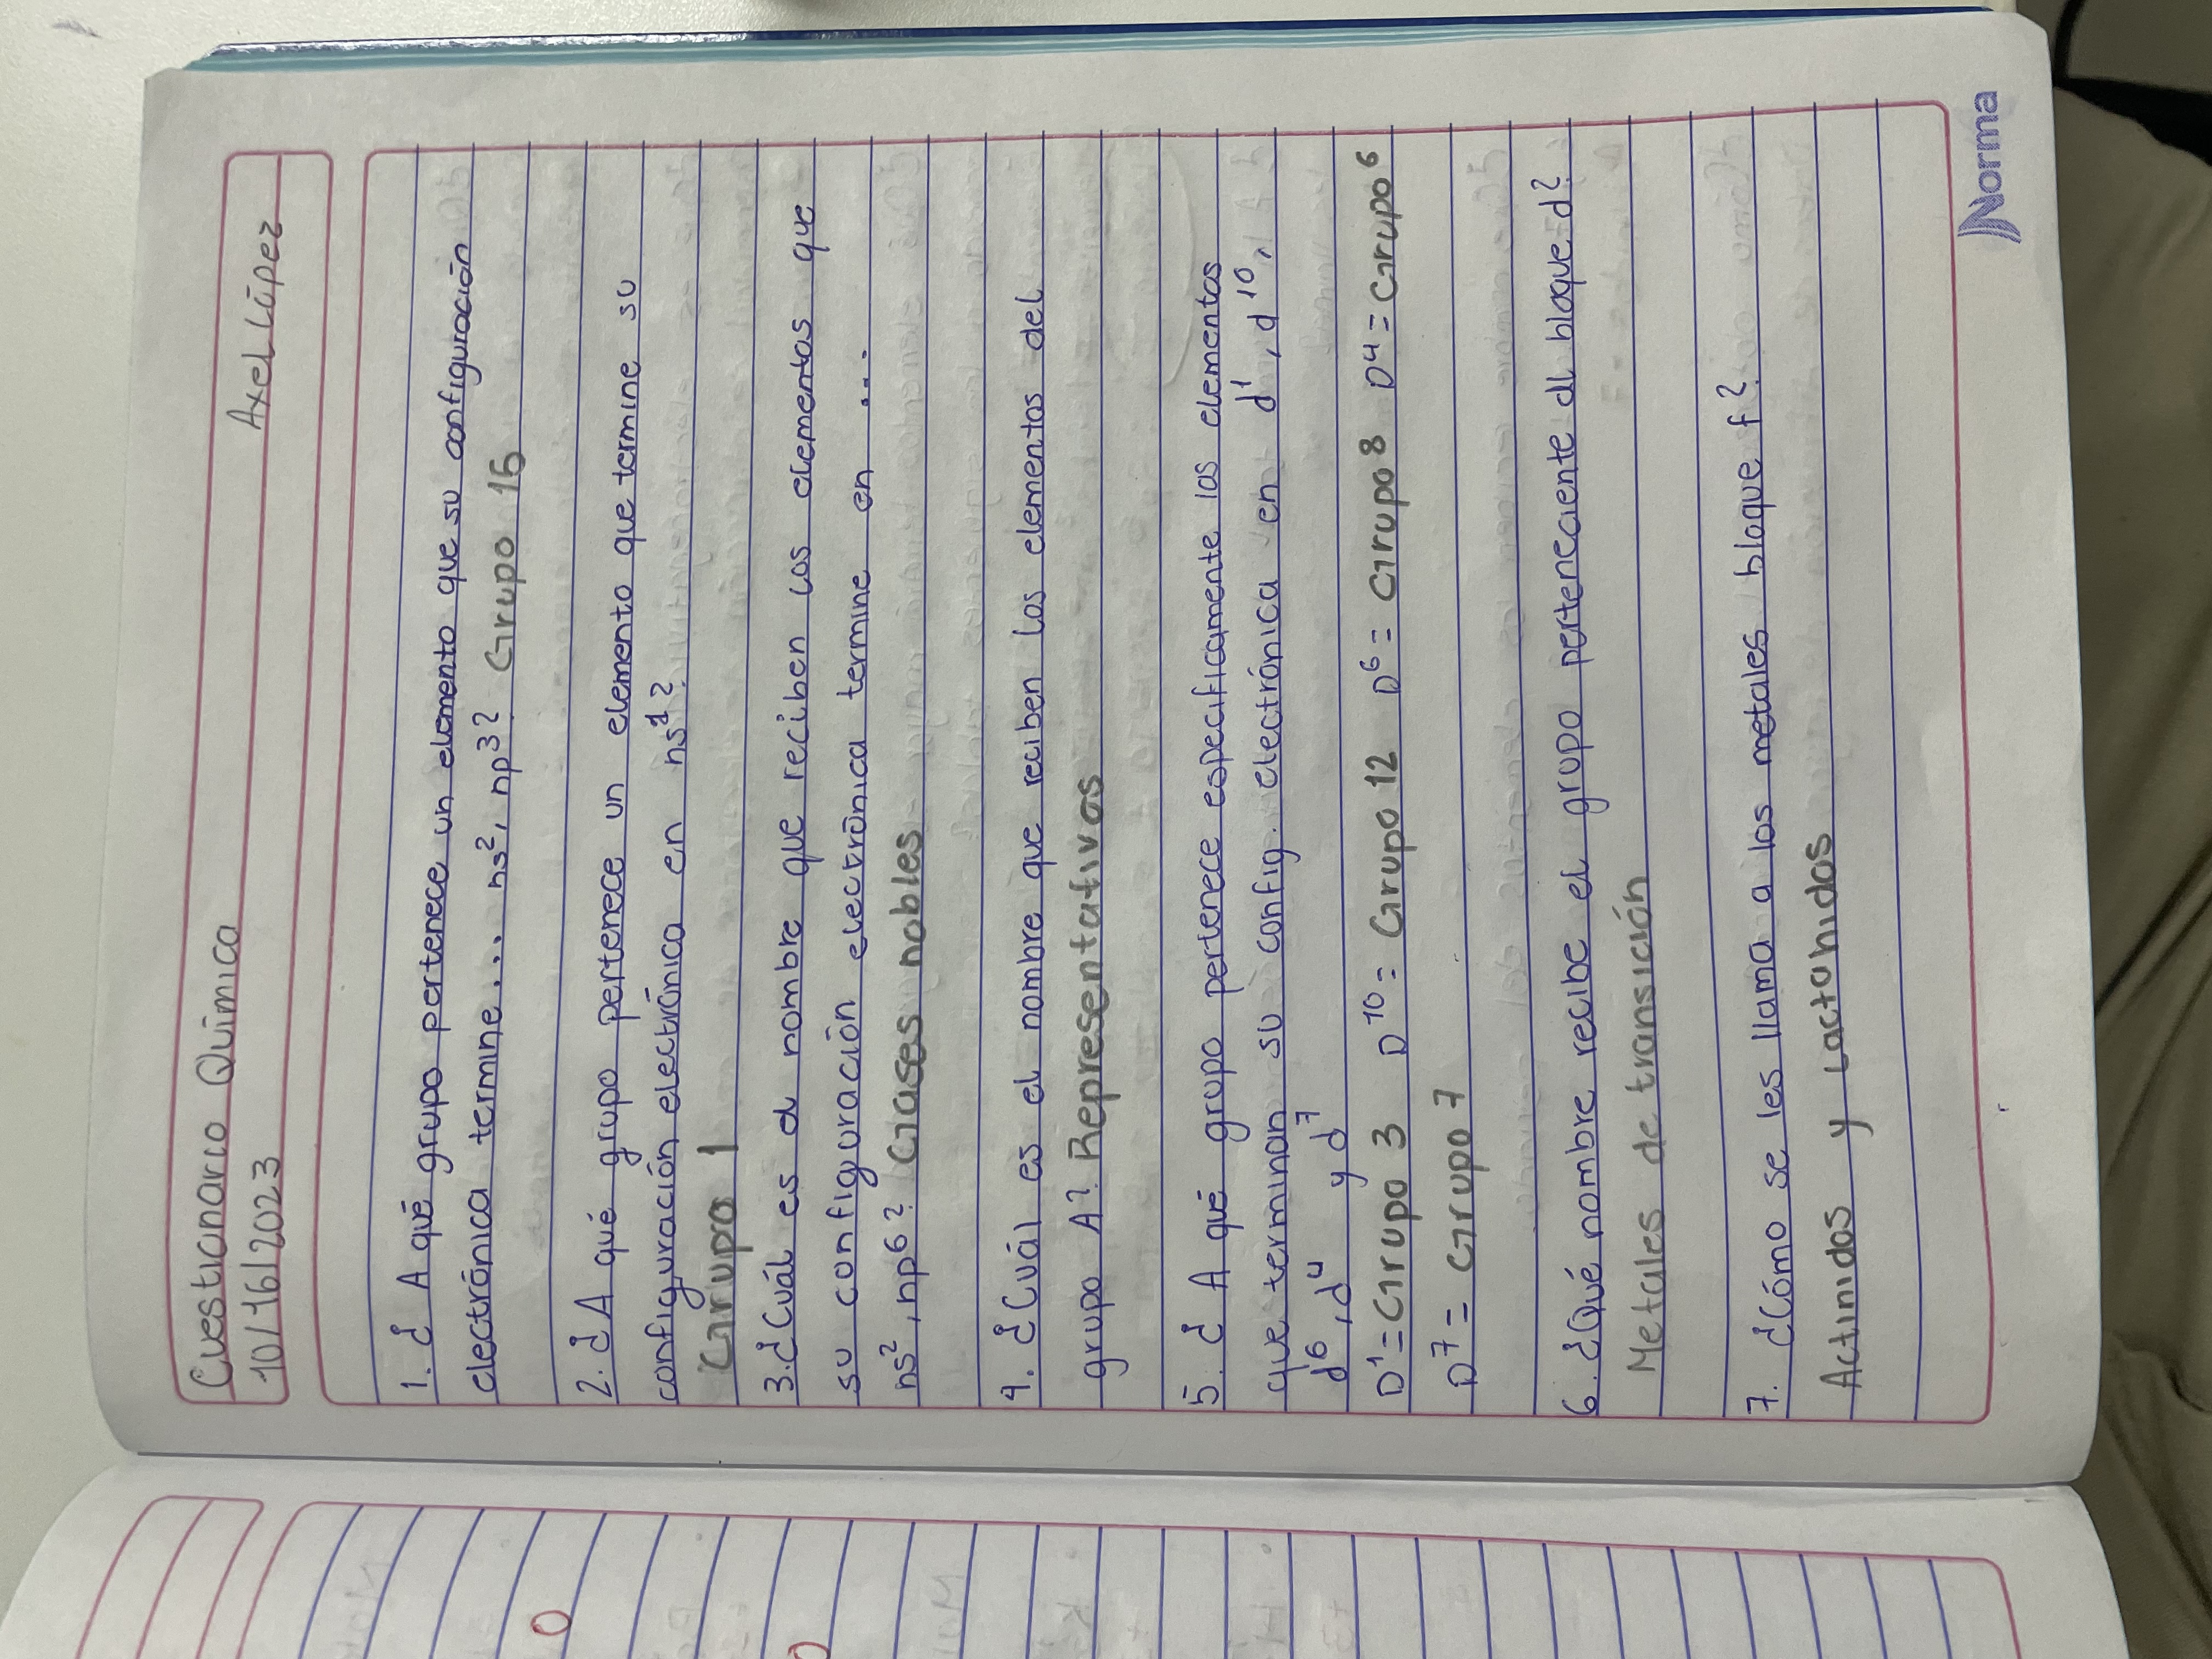 Cuestionario Química
10/16/2023 Axel López
1. ¿A qué grupo pertenece un elemento que su configuración
electrónica termine... ns², np³? Grupo 15
2. ¿A qué grupo pertenece un elemento que termine su
configuración electrónica en ns¹?
Grupo 1
3. ¿Cuál es el nombre que reciben los elementos que
su configuración electrónica termine en ...
ns², np⁶? Gases nobles
4. ¿Cuál es el nombre que reciben los elementos del
grupo A? Representativos
5. ¿A qué grupo pertenece especificamente los elementos
que terminan su config. electrónica en d¹, d¹⁰,
d⁶, d⁴ y d⁷
D¹=Grupo 3 D¹⁰= Grupo 12 D⁶= Grupo 8 D⁴= Grupo 6
D⁷= Grupo 7
6. ¿Qué nombre recibe el grupo perteneciente al bloque d?
Metales de transición
7. ¿Cómo se les llama a los metales bloque f?
Actinidos y Lactanidos
Norma